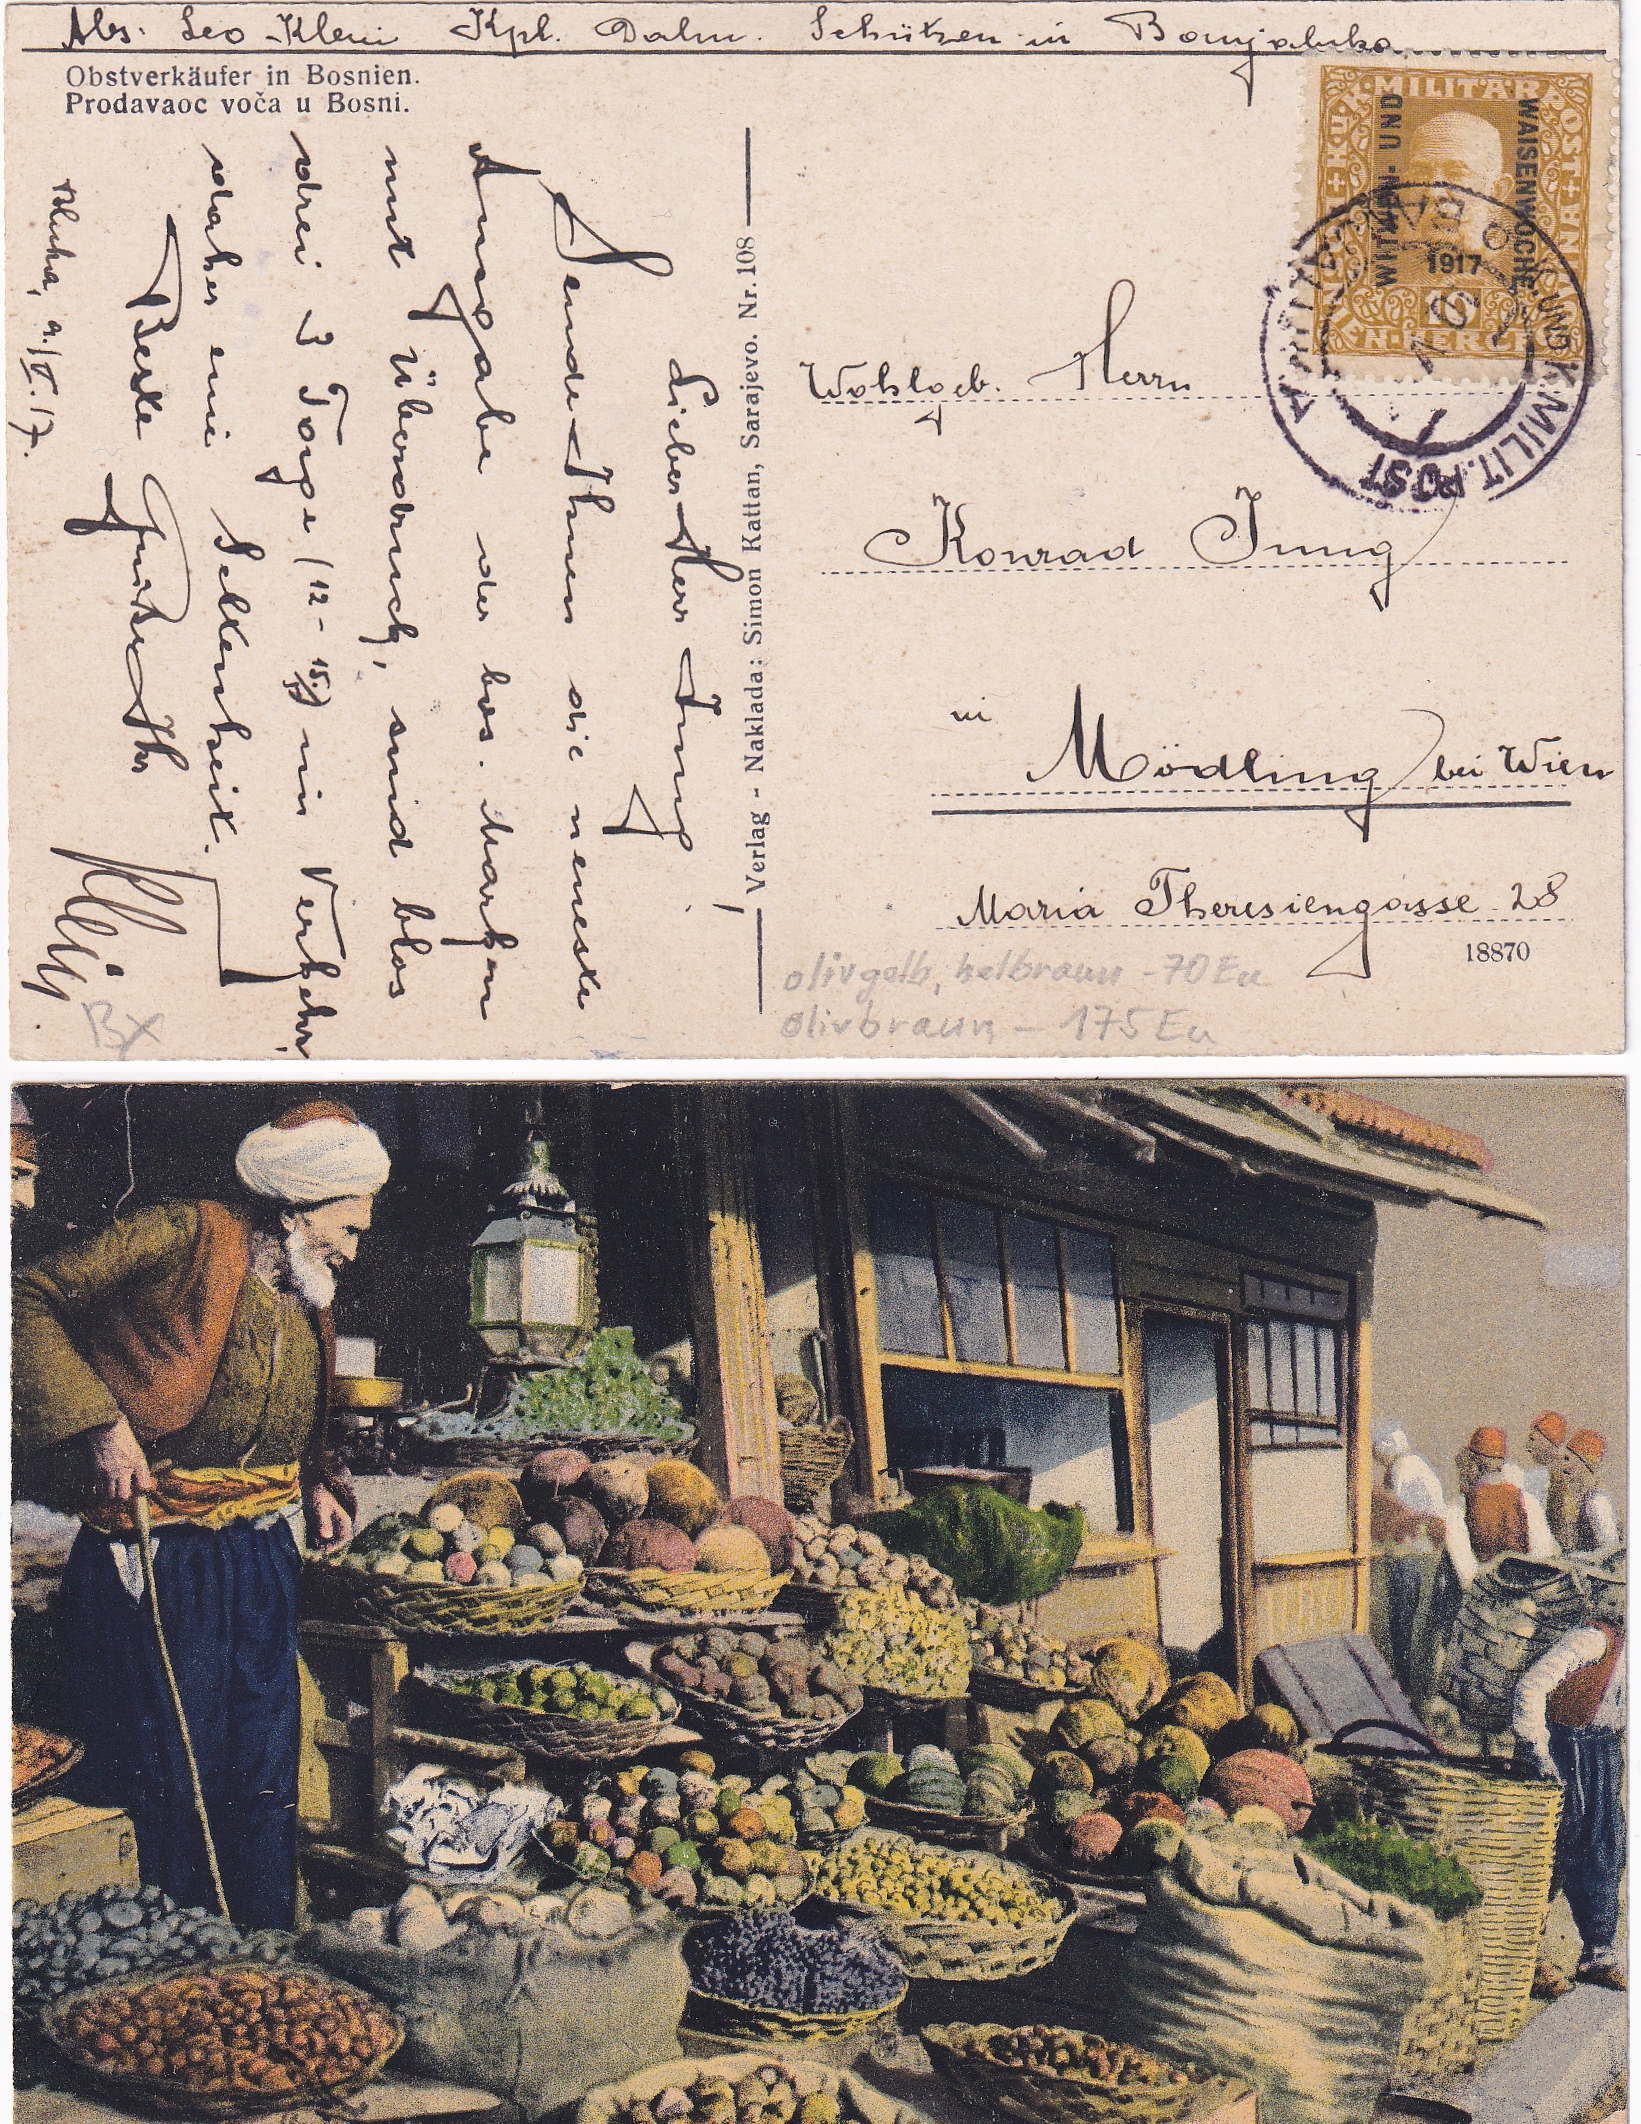 Abs. Leo Klein Kpl. Dalm. Schützen in Banjaluka
Obstverkäufer in Bosnien.
Prodavaoc voća u Bosni.
K.u.K. MILITÄRPOST
WITWEN- UND
WAISENWOCHE.
1917
10
K. UND K. MILIT. POST
Lieber Herr Jung!
Sende Ihnen die neueste
Ausgabe der bos. Marken
mit Überdruck, sind blos
drei 3 Tage (12-15.) im Verkehr,
daher eine Seltenheit.
Beste Grüße Ihr
Klein
Bluka, 9./V. 17.
Verlag - Naklada: Simon Kattan, Sarajevo. Nr. 108
Wohlgeb. Herrn
Konrad Jung
in
Mödling bei Wien
Maria Theresiengasse 28
18870
olivgelb, helbraun - 70 Eu
olivbraun - 175 Eu
BX